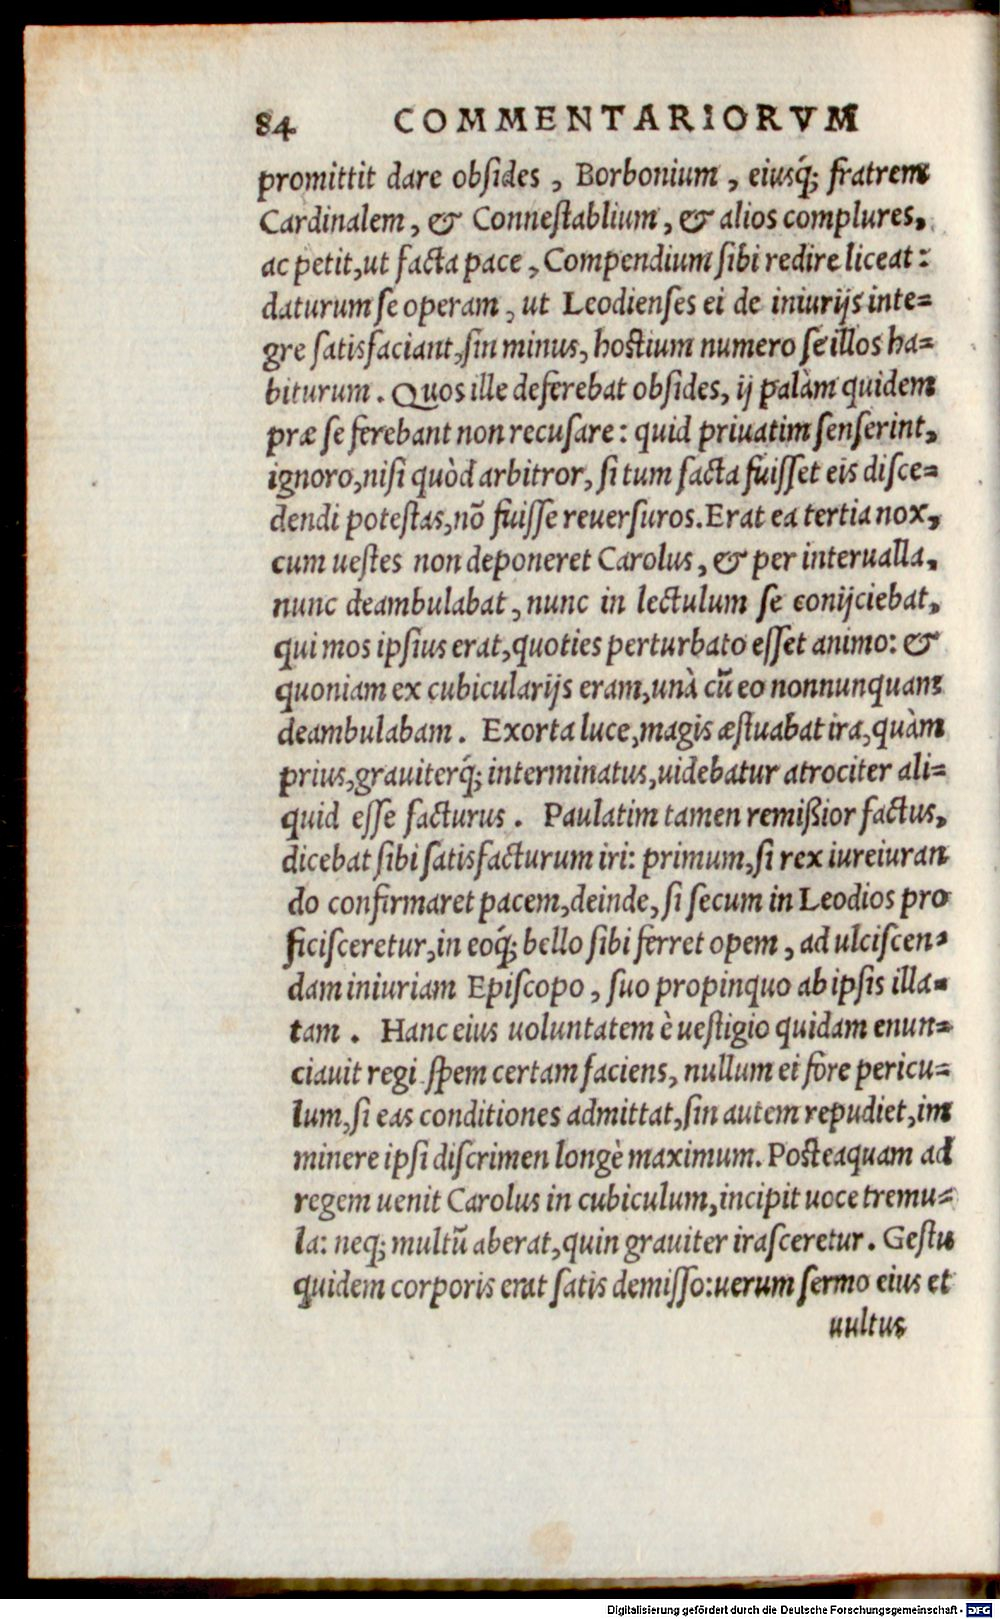 84 COMMENTARIORVM
promittit dare obsides , Borbonium , eiusq́; fratrem
Cardinalem, & Connestablium, & alios complures,
ac petit,ut facta pace , Compendium sibi redire liceat:
daturum se operam , ut Leodienses ei de iniurijs inte=
gre satisfaciant,sin minus, hostium numero se illos ha=
biturum . Quos ille deferebat obsides, ij palàm quidem
præ se ferebant non recusare: quid priuatim senserint,
ignoro,nisi quòd arbitror, si tum facta fuisset eis disce=
dendi potestas,nõ fuisse reuersuros. Erat ea tertia nox,
cum uestes non deponeret Carolus, & per interualla,
nunc deambulabat, nunc in lectulum se conijciebat,
qui mos ipsius erat,quoties perturbato esset animo: &
quoniam ex cubicularijs eram,unà cũ eo nonnunquam
deambulabam . Exorta luce,magis æstuabat ira,quàm
prius,grauiterq́; interminatus,uidebatur atrociter ali=
quid esse facturus . Paulatim tamen remißior factus,
dicebat sibi satisfacturum iri: primum,si rex iureiuran
do confirmaret pacem,deinde, si secum in Leodios pro
ficisceretur,in eoq́; bello sibi ferret opem , ad ulciscen=
dam iniuriam Episcopo , suo propinquo ab ipsis illa=
tam . Hanc eius uoluntatem è uestigio quidam enun=
ciauit regi spem certam faciens, nullum ei fore pericu=
lum,si eas conditiones admittat,sin autem repudiet,im
minere ipsi discrimen longè maximum. Posteaquam ad
regem uenit Carolus in cubiculum,incipit uoce tremu=
la: neq; multũ aberat,quin grauiter irasceretur. Gestu
quidem corporis erat satis demisso:uerum sermo eius et
uultus
Digitalisierung gefördert durch die Deutsche Forschungsgemeinschaft - DFG